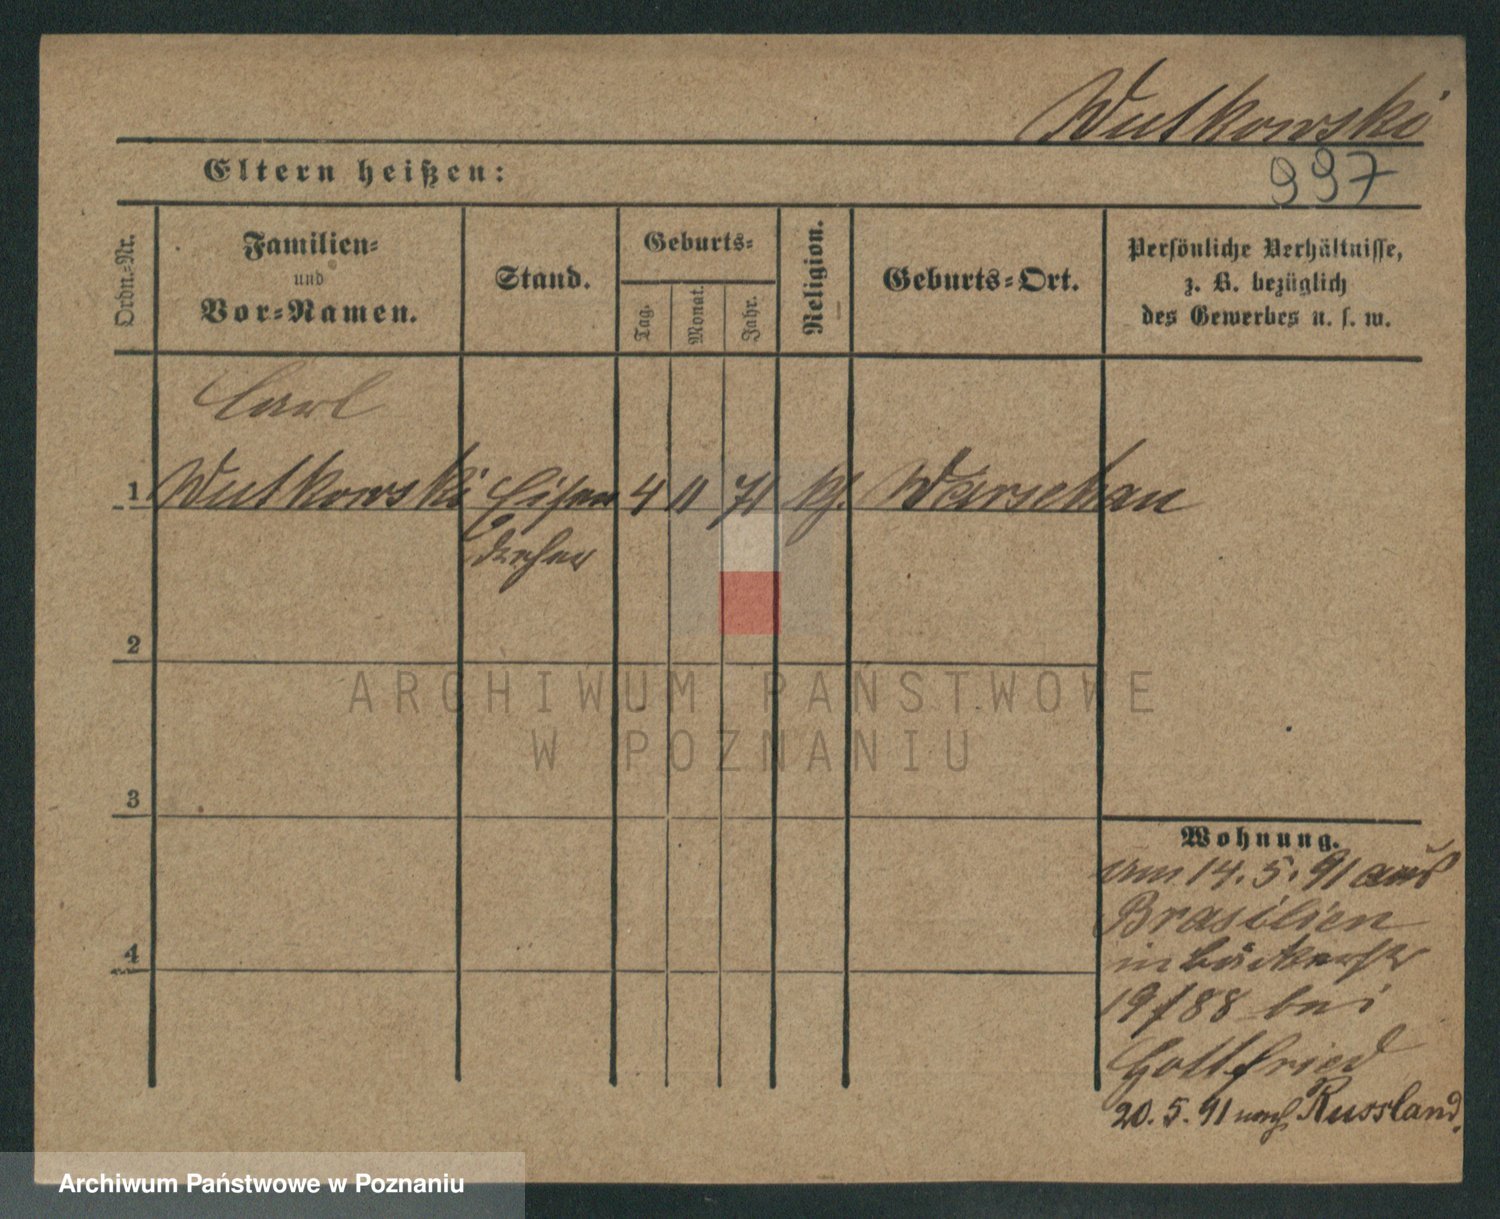 Wutkowski
Eltern heißen:
997
Ordn.-Nr.
Familien-
und
Vor-Namen.
Stand.
Geburts-
Tag.
Monat.
Jahr.
Religion.
Geburts-Ort.
Persönliche Verhältnisse,
z. B. bezüglich
des Gewerbes u. s. w.
Carl
1 Wutkowski Eisen 4 11 71 kf. Warschau
dreher
2
ARCHIWUM PAŃSTWOWE
W POZNANIU
3
Wohnung.
am 14. 5. 91 aus
Brasilien
4
in
19/88 bei
Gottfried
20. 5. 91 nach Russland.
Archiwum Państwowe w Poznaniu